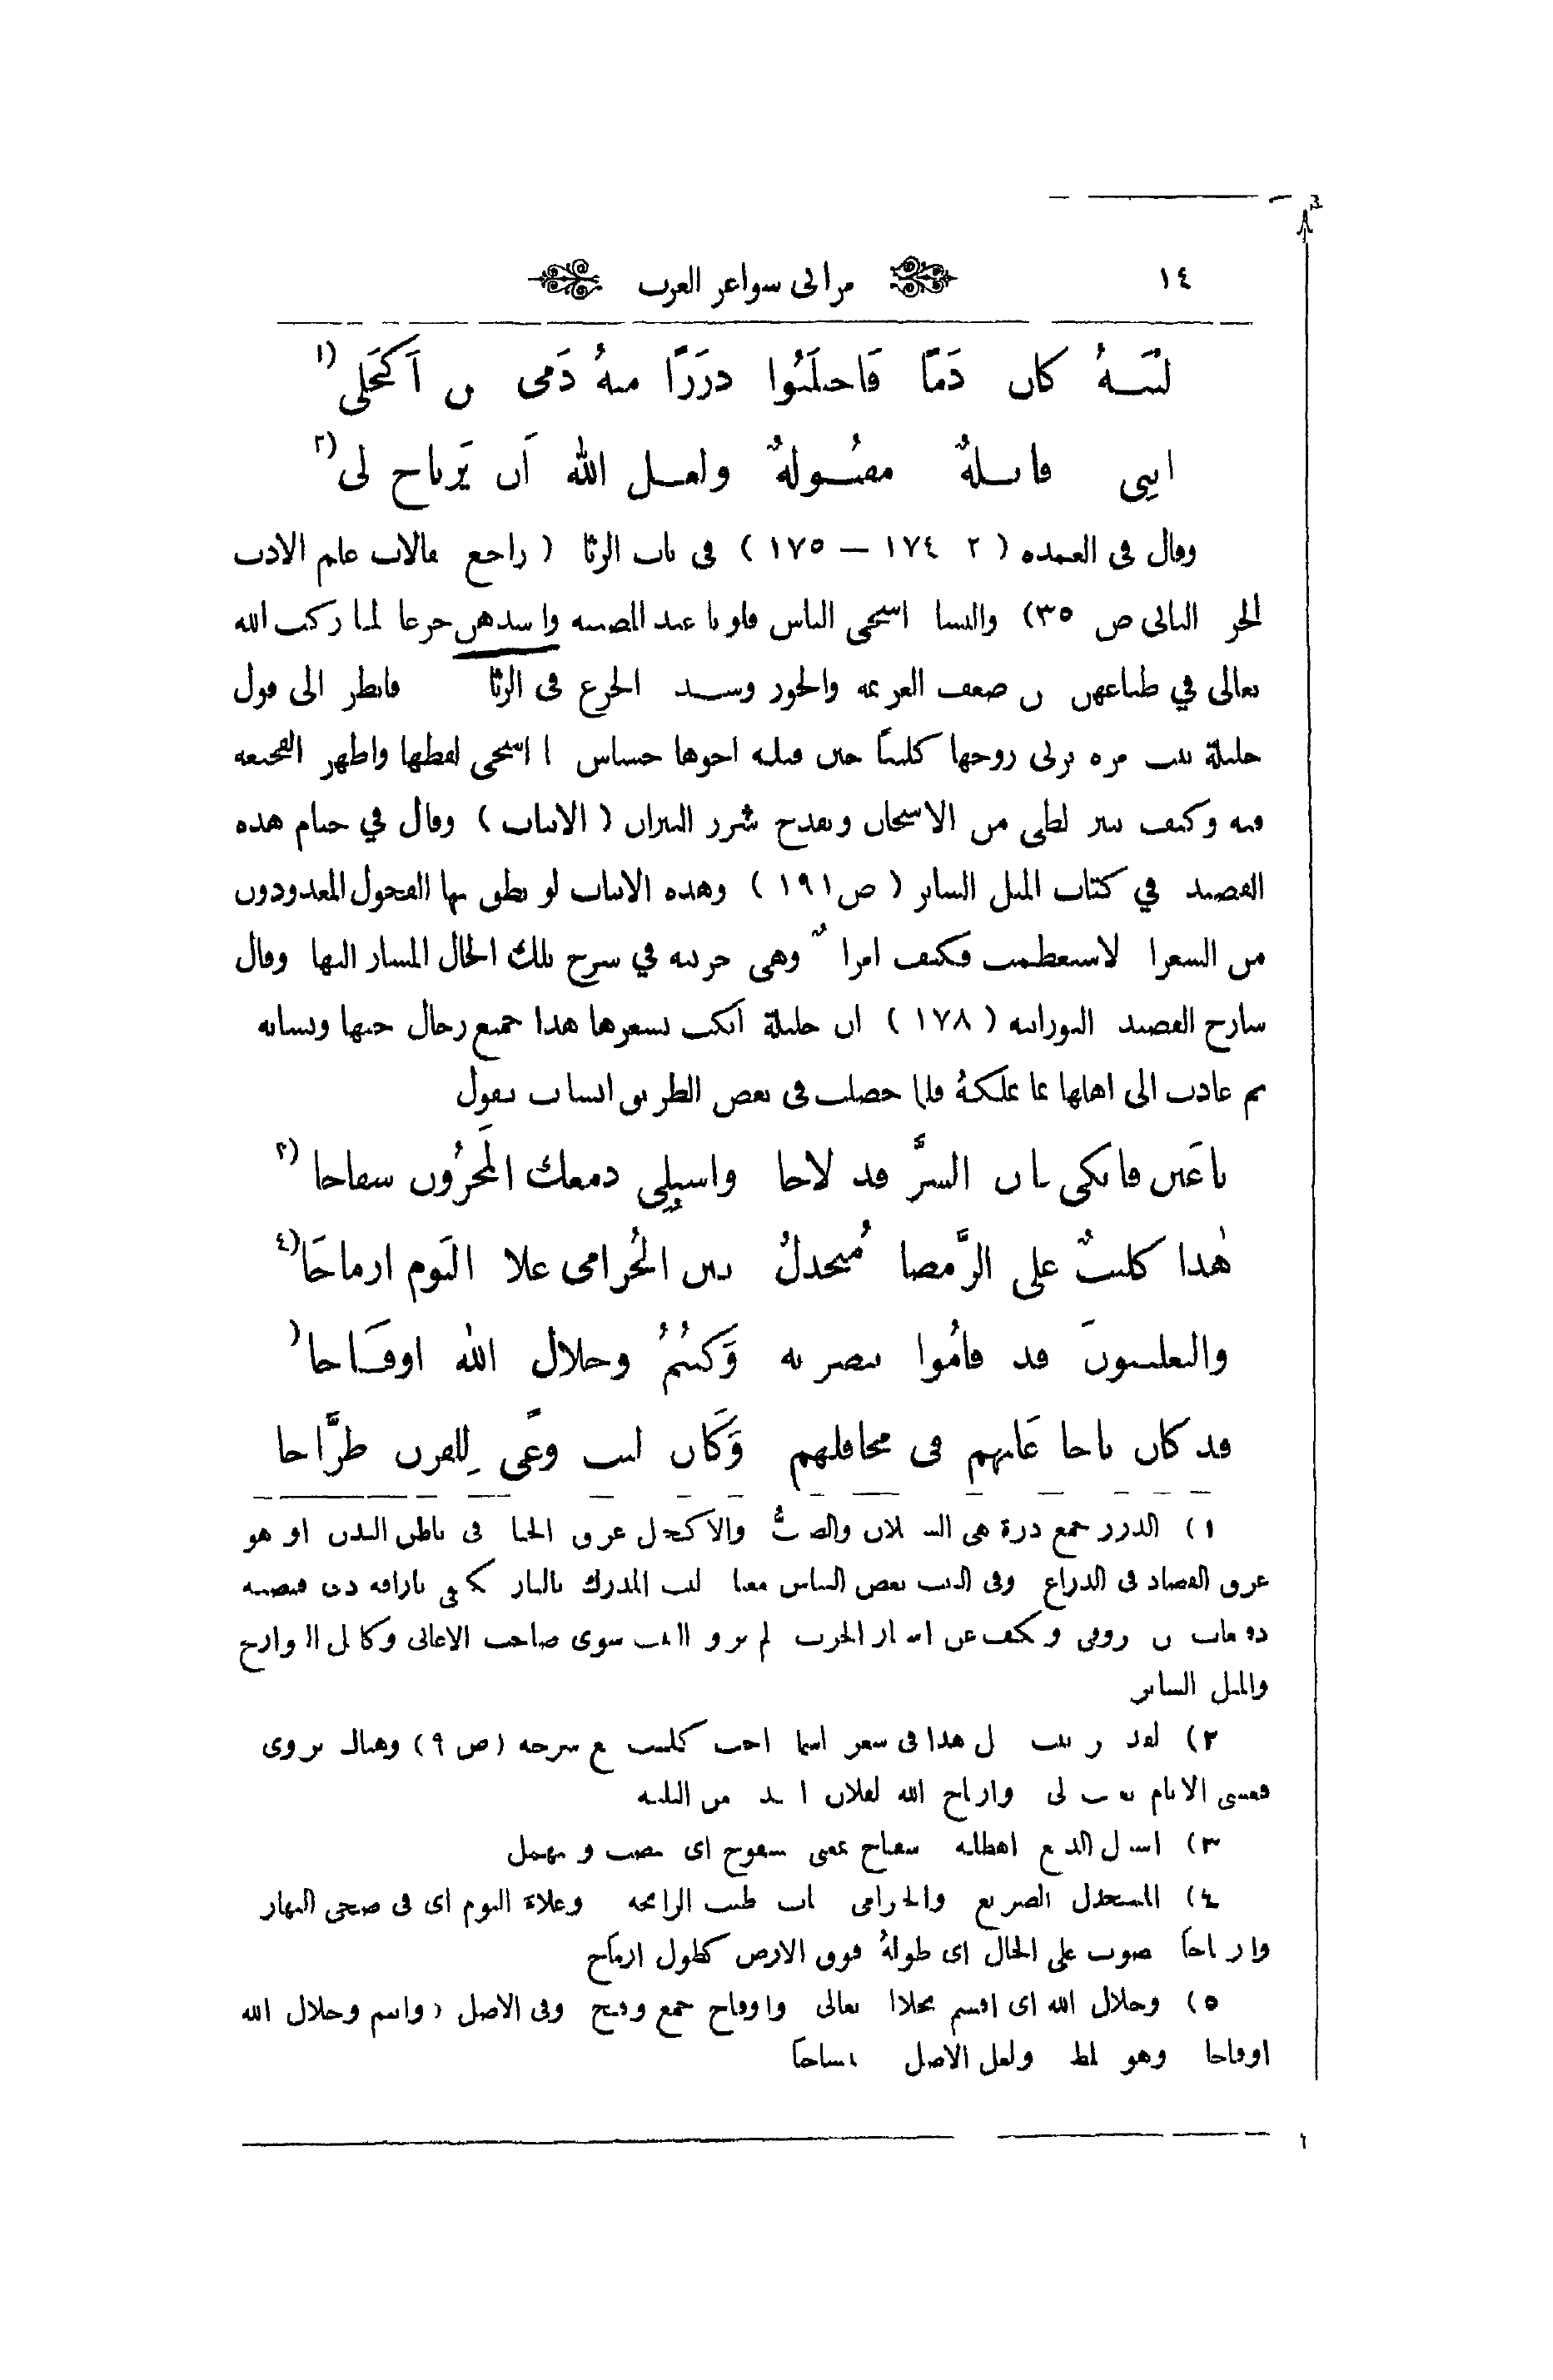 ١٤ مراثي شواعر العرب
ليتهُ كان دَمًا فَاحتلَبُوا دِرَرًا منهُ دَمِي من اَكحَلي (١
انني قاتلةٌ مقتُولةٌ ولعل الله اَن يَرتاح لي (٢
وقال في العمدة ( ٢ ١٧٤ — ١٧٥ ) في باب الرثا ( راجع مقالات علم الادب
الجز الثاني ص ٣٥) والنسا اشجى الناس قلوبا عند المصيبة واشدهن جزعا لما ركب الله
تعالى في طباعهن من ضعف العزيمة والخور وشد الجزع في الرثا فانظر الى قول
جليلة بنت مرة ترثي زوجها كليبًا حين قتله اخوها جساس ما اشجى لفظها واظهر الفجيعة
فيه وكيف يثير لظى من الاشجان ويقدح شرر النيران ( الابيات ) وقال في ختام هذه
القصيد في كتاب المثل السائر ( ص ١٩١ ) وهذه الابيات لو نطق بها الفحول المعدودون
من الشعرا لاستعظمت فكيف امراةٌ وهي حزينة في شرح تلك الحال المشار اليها وقال
شارح القصيد النورانية ( ١٧٨ ) ان جليلة ابكت بشعرها هذا جميع رجال حيها ونسائه
ثم عادت الى اهلها بما تملكهُ فلما حصلت في بعض الطريق انشات تقول
يا عَين فابكي فان الشرَّ قد لاحا واسبلي دمعك المَخزُون سفاحا (٣
هٰذا كليبٌ على الرَّمضا مُنجدلٌ بين الخُزامى علا اليَوم ارماحَا (٤
والتغلبيونَ قد قامُوا بنصرته وَكنتُمُ وجلال الله اوقـاحا (
قد كان تاجا عَليهم في محافلهم وَكَان ليث وغًى لِلقرن طرَّاحا
١) الدرر جمع درة هي السيلان والصبُّ والاكحل عرق الحيا في باطن البدن او هو
عرق الفصاد في الذراع وفي البيت بعض التباس معنا ليت المدرك بالثار يكتفي باراقة دمي فيصيبه
دفعات من روقي ويكف عن اثار الحرب لم يرو البيت سوى صاحب الاغاني وكامل التواريخ
والمثل السائر
٢) لقد ر بيت مثل هذا في شعر اسما اخت كليب مع شرحه (ص ٩) وهناك يروى
فعسى الايام لي واراح الله لفلان انقذ من البلية
٣) اسبل الدمع اهطله سفاح بمعنى سفوح اي منصب ومنهمل
٤) المنجدل الصريع والخزامى نبات طيب الرائحة وعلاة اليوم اي في ضحى النهار
وارماحًا منصوب على الحال اي طولهُ فوق الارض كطول ارماح
٥) وجلال الله اي اقسم بجلاله تعالى واوقاح جمع وقح وفي الاصل ( واسم وجلال الله
اوقاحا وهو غلط ولعل الاصل